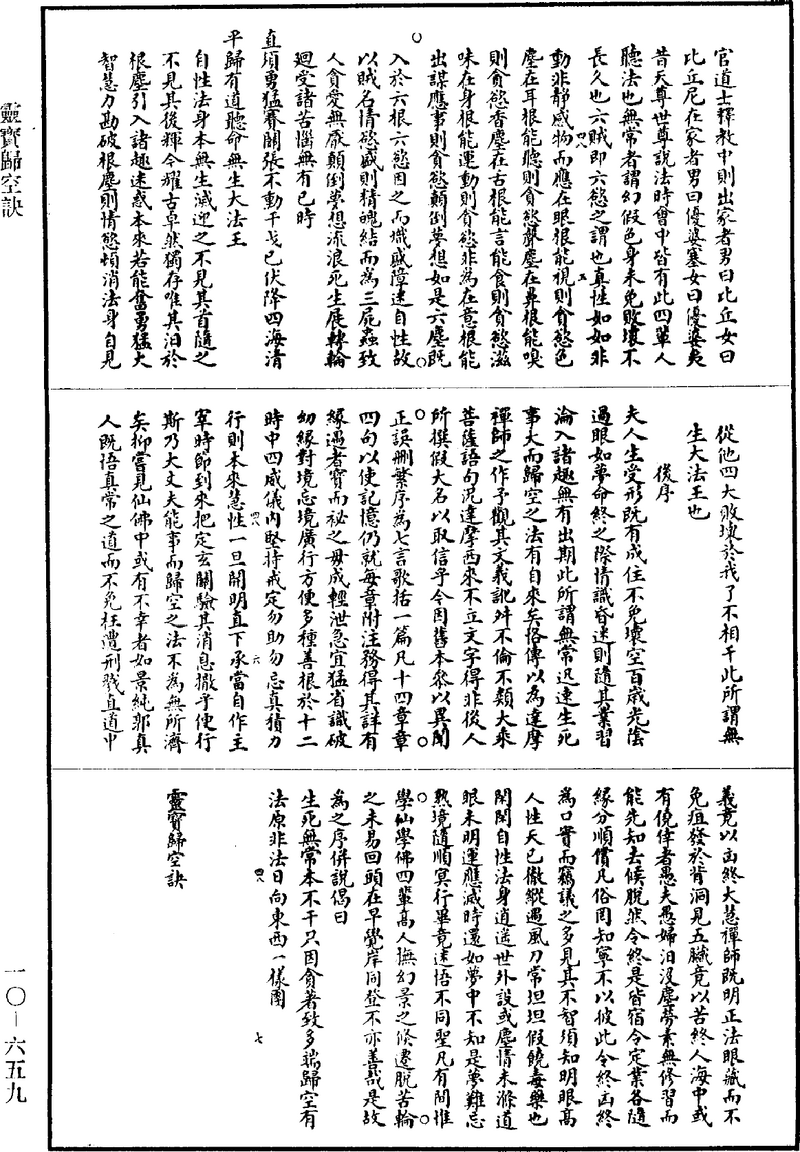 官道士釋教中則出家者男曰比丘女曰
比丘尼在家者男曰優婆塞女曰優婆夷
昔天尊世尊說法時會中皆有此四輩人
聽法也無常者謂幻假色身未免敗壞不
長久也六賊即六慾之謂也真性如如非
動非靜感物而應在眼根能視則貪慾色
塵在耳根能聽則貪慾聲塵在鼻根能嗅
則貪慾香塵在舌根能言能食則貪慾滋
味在身根能運動則貪慾非為在意根能
出謀應事則貪慾顛倒夢想如是六塵既
入於六根六慾因之而熾盛障迷自性故
以賊名情慾盛則精魄結而為三屍蟲致
人貪愛無厭顛倒夢想流浪死生展轉輪
迴受諸苦惱無有已時
直須勇猛賽關張不動干戈已伏降四海清
平歸有道聽命無生大法王
自性法身本無生滅迎之不見其首隨之
不見其後輝今耀古卓然獨存唯其汩於
根塵引入諸趣迷惑本來若能奮勇猛大
智慧力勘破根塵則情慾頓消法身自見
從他四大敗壞於我了不相干此所謂無
生大法王也
後序
夫人生受形既有成住不免壞空百歲光陰
過眼如夢命終之際情識昏迷則隨其業習
淪入諸趣無有出期此所謂無常迅速生死
事大而歸空之法有自來矣俗傳以為達摩
禪師之作予觀其文義訛舛不倫不類大乘
菩薩語句況達摩西來不立文字得非後人
所撰假大名以取信乎今因舊本參以異聞
正誤刪繁序為七言歌括一篇凡十四章章
四句以使記憶仍就每章附注務得其詳有
緣遇者寶而祕之毋成輕泄急宜猛省識破
幼緣對境忘境廣行方便多種善根於十二
時中四威儀內堅持戒定勿助勿忘真積力
行則本來慧性一旦開明直下承當自作主
宰時節到來把定玄關驗其消息撒手便行
斯乃大丈夫能事而歸空之法不為無所濟
矣抑嘗見仙佛中或有不幸者如景純郭真
人既悟真常之道而不免枉遭刑戮直道中
義竟以凶終大慧禪師既明正法眼藏而不
免疽發於背洞見五臟竟以苦終人海中或
有僥倖者愚夫愚婦汩沒塵勞素無修習而
能先知去候脫然令終是皆宿令定業各隨
緣分順償凡俗罔知寧不以彼此令終凶終
為口實而竊議之多見其不智須知明眼高
人性天已徹縱遇風刀常坦坦假饒毒藥也
閑閑自性法身逍遙世外設或塵情未滌道
眼未明運應滅時還如夢中不知是夢難忘
熟境隨順冥行畢竟迷悟不同聖凡有間惟
學仙學佛四輩高人撫幻景之倏遷脫苦輪
之未易回頭在早覺岸同登不亦善哉是故
為之序併說偈曰
生死無常本不干只因貪著致多端歸空有
法原非法日向東西一樣團
靈寶歸空訣
靈寶歸空訣
一〇—六五九